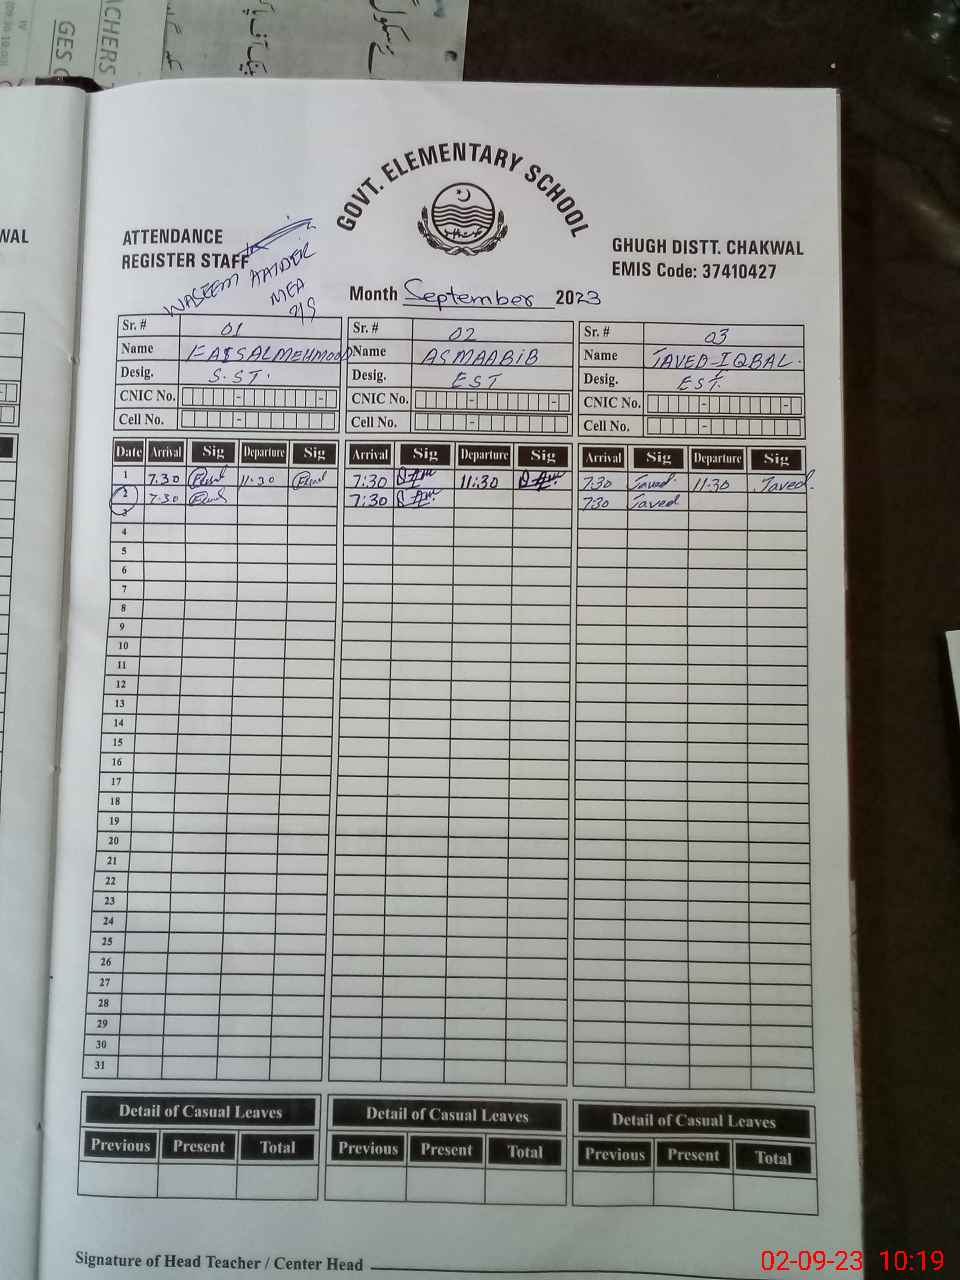 ACHERS
GES
WAL
GOVT. ELEMENTARY SCHOOL
ATTENDANCE
REGISTER STAFF
WASEEM HAIDER
MEA
2/9
GHUGH DISTT. CHAKWAL
EMIS Code: 37410427
Month September 2023
Sr. # 01 Sr. # 02 Sr. # 03
Name FAISAL MEHMOOD Name ASMA ABIB Name JAVED IQBAL.
Desig. S.ST. Desig. EST Desig. EST.
CNIC No. CNIC No. CNIC No.
Cell No. Cell No. Cell No.
Date Arrival Sig Departure Sig Arrival Sig Departure Sig Arrival Sig Departure Sig
1 7.30 11:30 7:30 11:30 7:30 Javed 11:30 Javed.
2 7:30 7:30 7:30 Javed
3
4
5
6
7
8
9
10
11
12
13
14
15
16
17
18
19
20
21
22
23
24
25
26
27
28
29
30
31
Detail of Casual Leaves Detail of Casual Leaves Detail of Casual Leaves
Previous Present Total Previous Present Total Previous Present Total
Signature of Head Teacher / Center Head
02-09-23 10:19